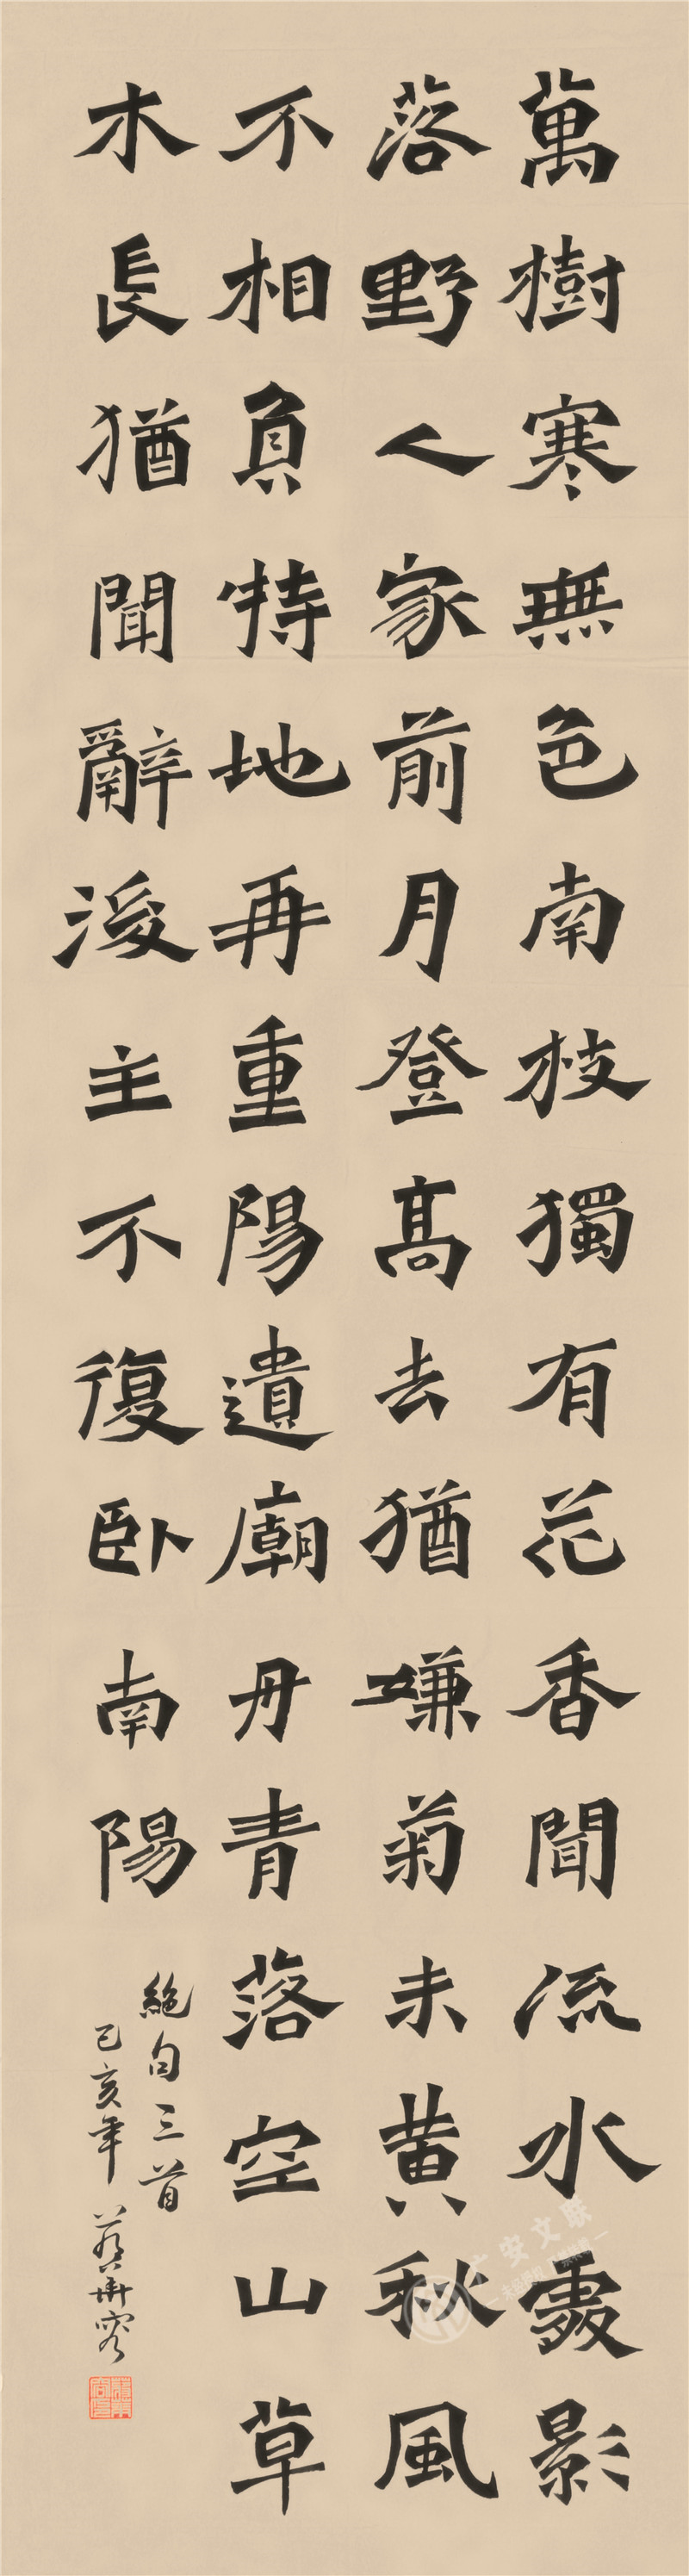 萬樹寒無色南枝獨有花香聞流水處影
落野人家前月登高去猶嫌菊未黄秋風
不相負特地再重陽遺廟丹青落空山草
木長猶聞辭後主不復卧南陽
絶句三首
己亥年
广安文联